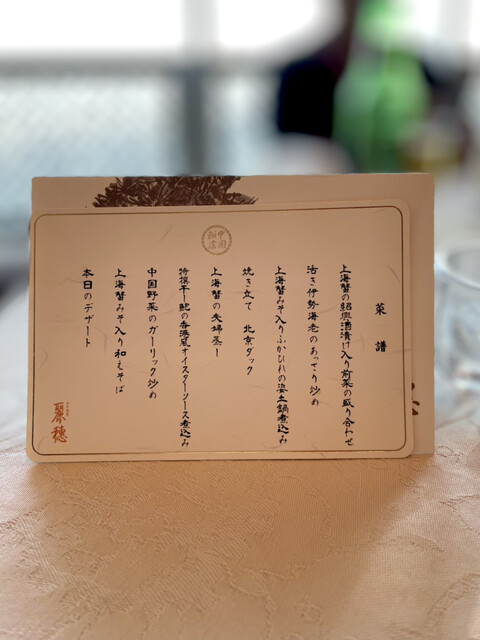 菜譜
上海蟹の紹興酒漬け入り前菜の盛り合わせ
活き伊勢海老のあっさり炒め
上海蟹みそ入りふかひれの姿土鍋煮込み
焼き立て 北京ダック
上海蟹の夫婦蒸し
特撰干し鮑の香港風オイスターソース煮込み
中国野菜のガーリック炒め
上海蟹みそ入り和えそば
本日のデザート
麗穂